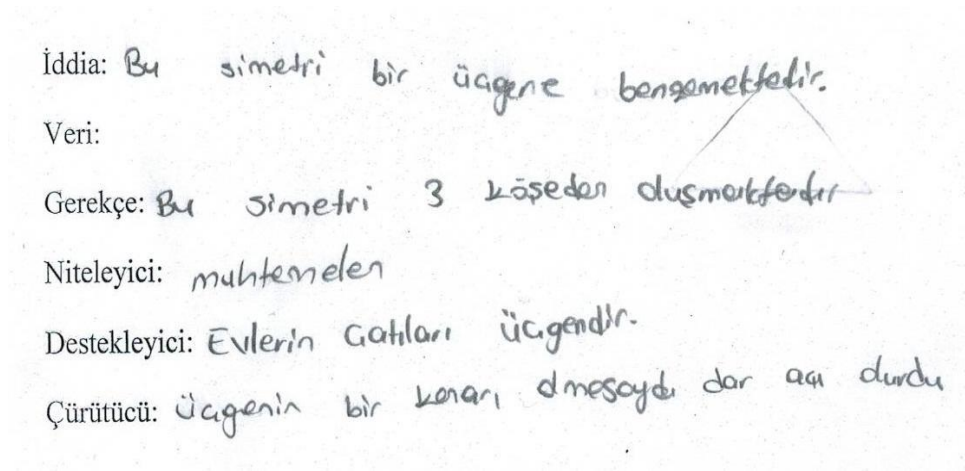 İddia: Bu simetri bir üçgene benzemektedir.
Veri:
Gerekçe: Bu simetri 3 köşeden oluşmaktadır
Niteleyici: muhtemelen
Destekleyici: Evlerin Çatıları üçgendir.
Çürütücü: Üçgenin bir kenarı olmasaydı dar açı olurdu